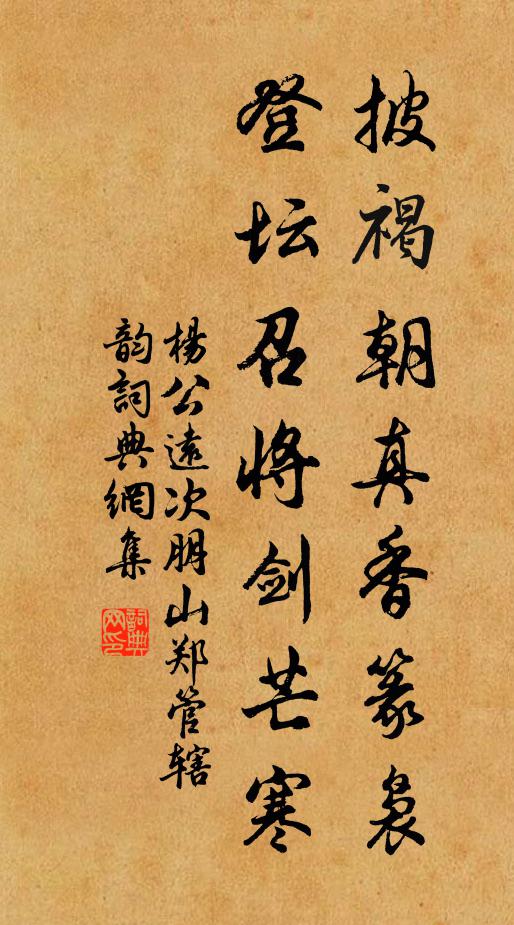 披褐朝真香篆袅
登坛召将剑芒寒
楊公遠次朋山郑管辖
韵詞典網集
詞典网印